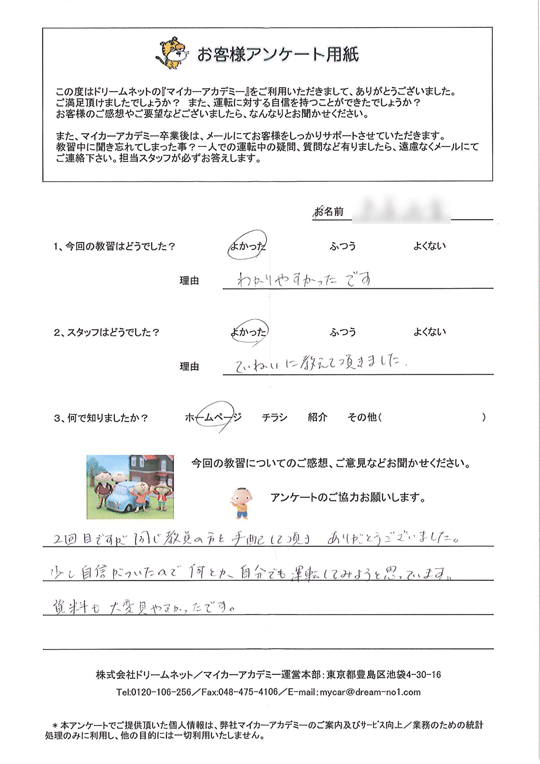 お客様アンケート用紙
この度はドリームネットの『マイカーアカデミー』をご利用いただきまして、ありがとうございました。
ご満足頂けましたでしょうか？ また、運転に対する自信を持つことができたでしょうか？
お客様のご感想やご要望などございましたら、なんなりとお聞かせください。
また、マイカーアカデミー卒業後は、メールにてお客様をしっかりサポートさせていただきます。
教習中に聞き忘れてしまった事？一人での運転中の疑問、質問など有りましたら、遠慮なくメールにて
ご連絡下さい。担当スタッフが必ずお答えします。
お名前
1、今回の教習はどうでした？ よかった ふつう よくない
理由 わかりやすかったです
2、スタッフはどうでした？ よかった ふつう よくない
理由 ていねいに教えて頂きました。
3、何で知りましたか？ ホームページ チラシ 紹介 その他( )
今回の教習についてのご感想、ご意見などお聞かせください。
アンケートのご協力お願いします。
2回目ですが同じ教員の方を手配して頂きありがとうございました。
少し自信がついたので何とか、自分でも運転してみようと思っています。
資料も大変見やすかったです。
株式会社ドリームネット／マイカーアカデミー運営本部：東京都豊島区池袋4-30-16
Tel:0120-106-256／Fax:048-475-4106／E-mail：mycar@dream-no1.com
＊本アンケートでご提供頂いた個人情報は、弊社マイカーアカデミーのご案内及びサービス向上／業務のための統計
処理のみに利用し、他の目的には一切利用いたしません。